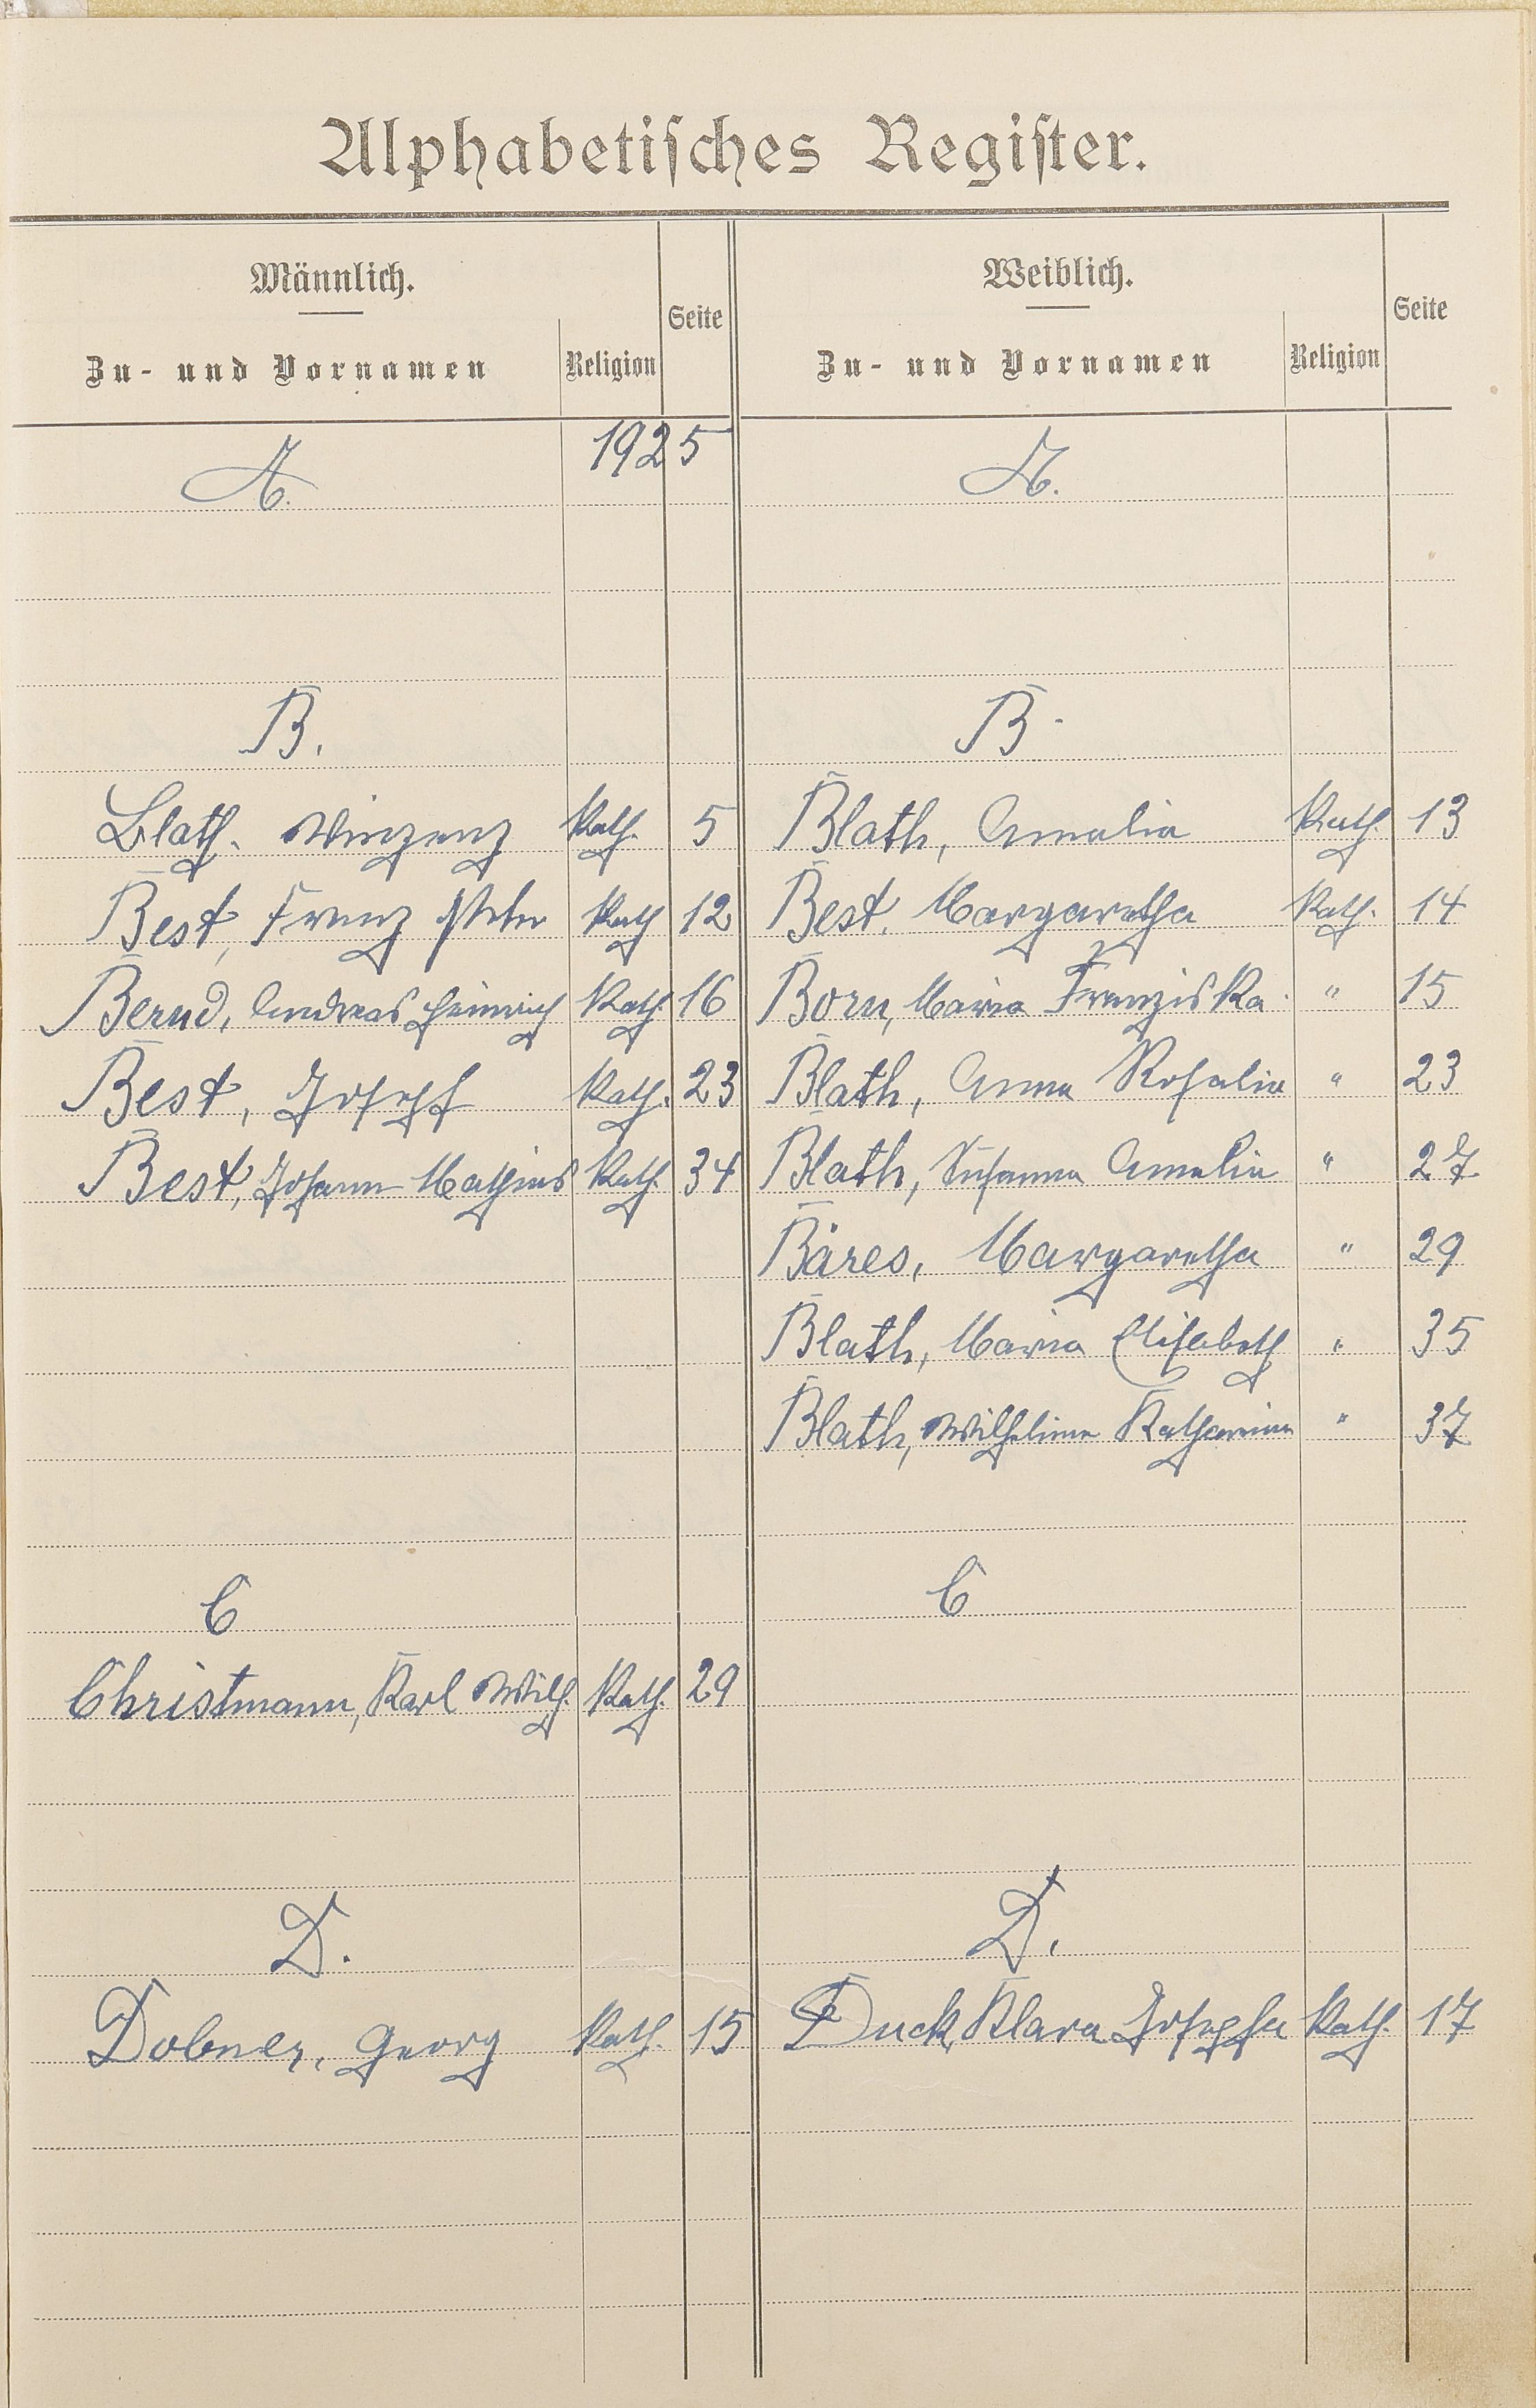 Alphabetisches Register.
Männlich. Seite Weiblich. Seite
Zu- und Vornamen Religion Zu- und Vornamen Religion
A. 1925 A.
B. B.
Blath. Vinzenz Kath. 5 Blath, Amalia Kath. 13
Best, Franz Peter Kath 12 Best. Margaretha Kath. 14
Bernd, Andreas Heinrich Kath. 16 Born, Maria Franziska " 15
Best, Joseph Kath. 23 Blath, Anna Rosalia " 23
Best, Johann Mathias Kath. 34 Blath, Susanna Amalia " 27
Bäres, Margaretha " 29
Blath, Maria Elisabeth " 35
Blath, Wilhelmine Katharina " 37
C C
Christmann, Karl Wilh. Kath. 29
D. D.
Dobner, Georg Kath. 15 Duck, Klara Josepha Kath. 17